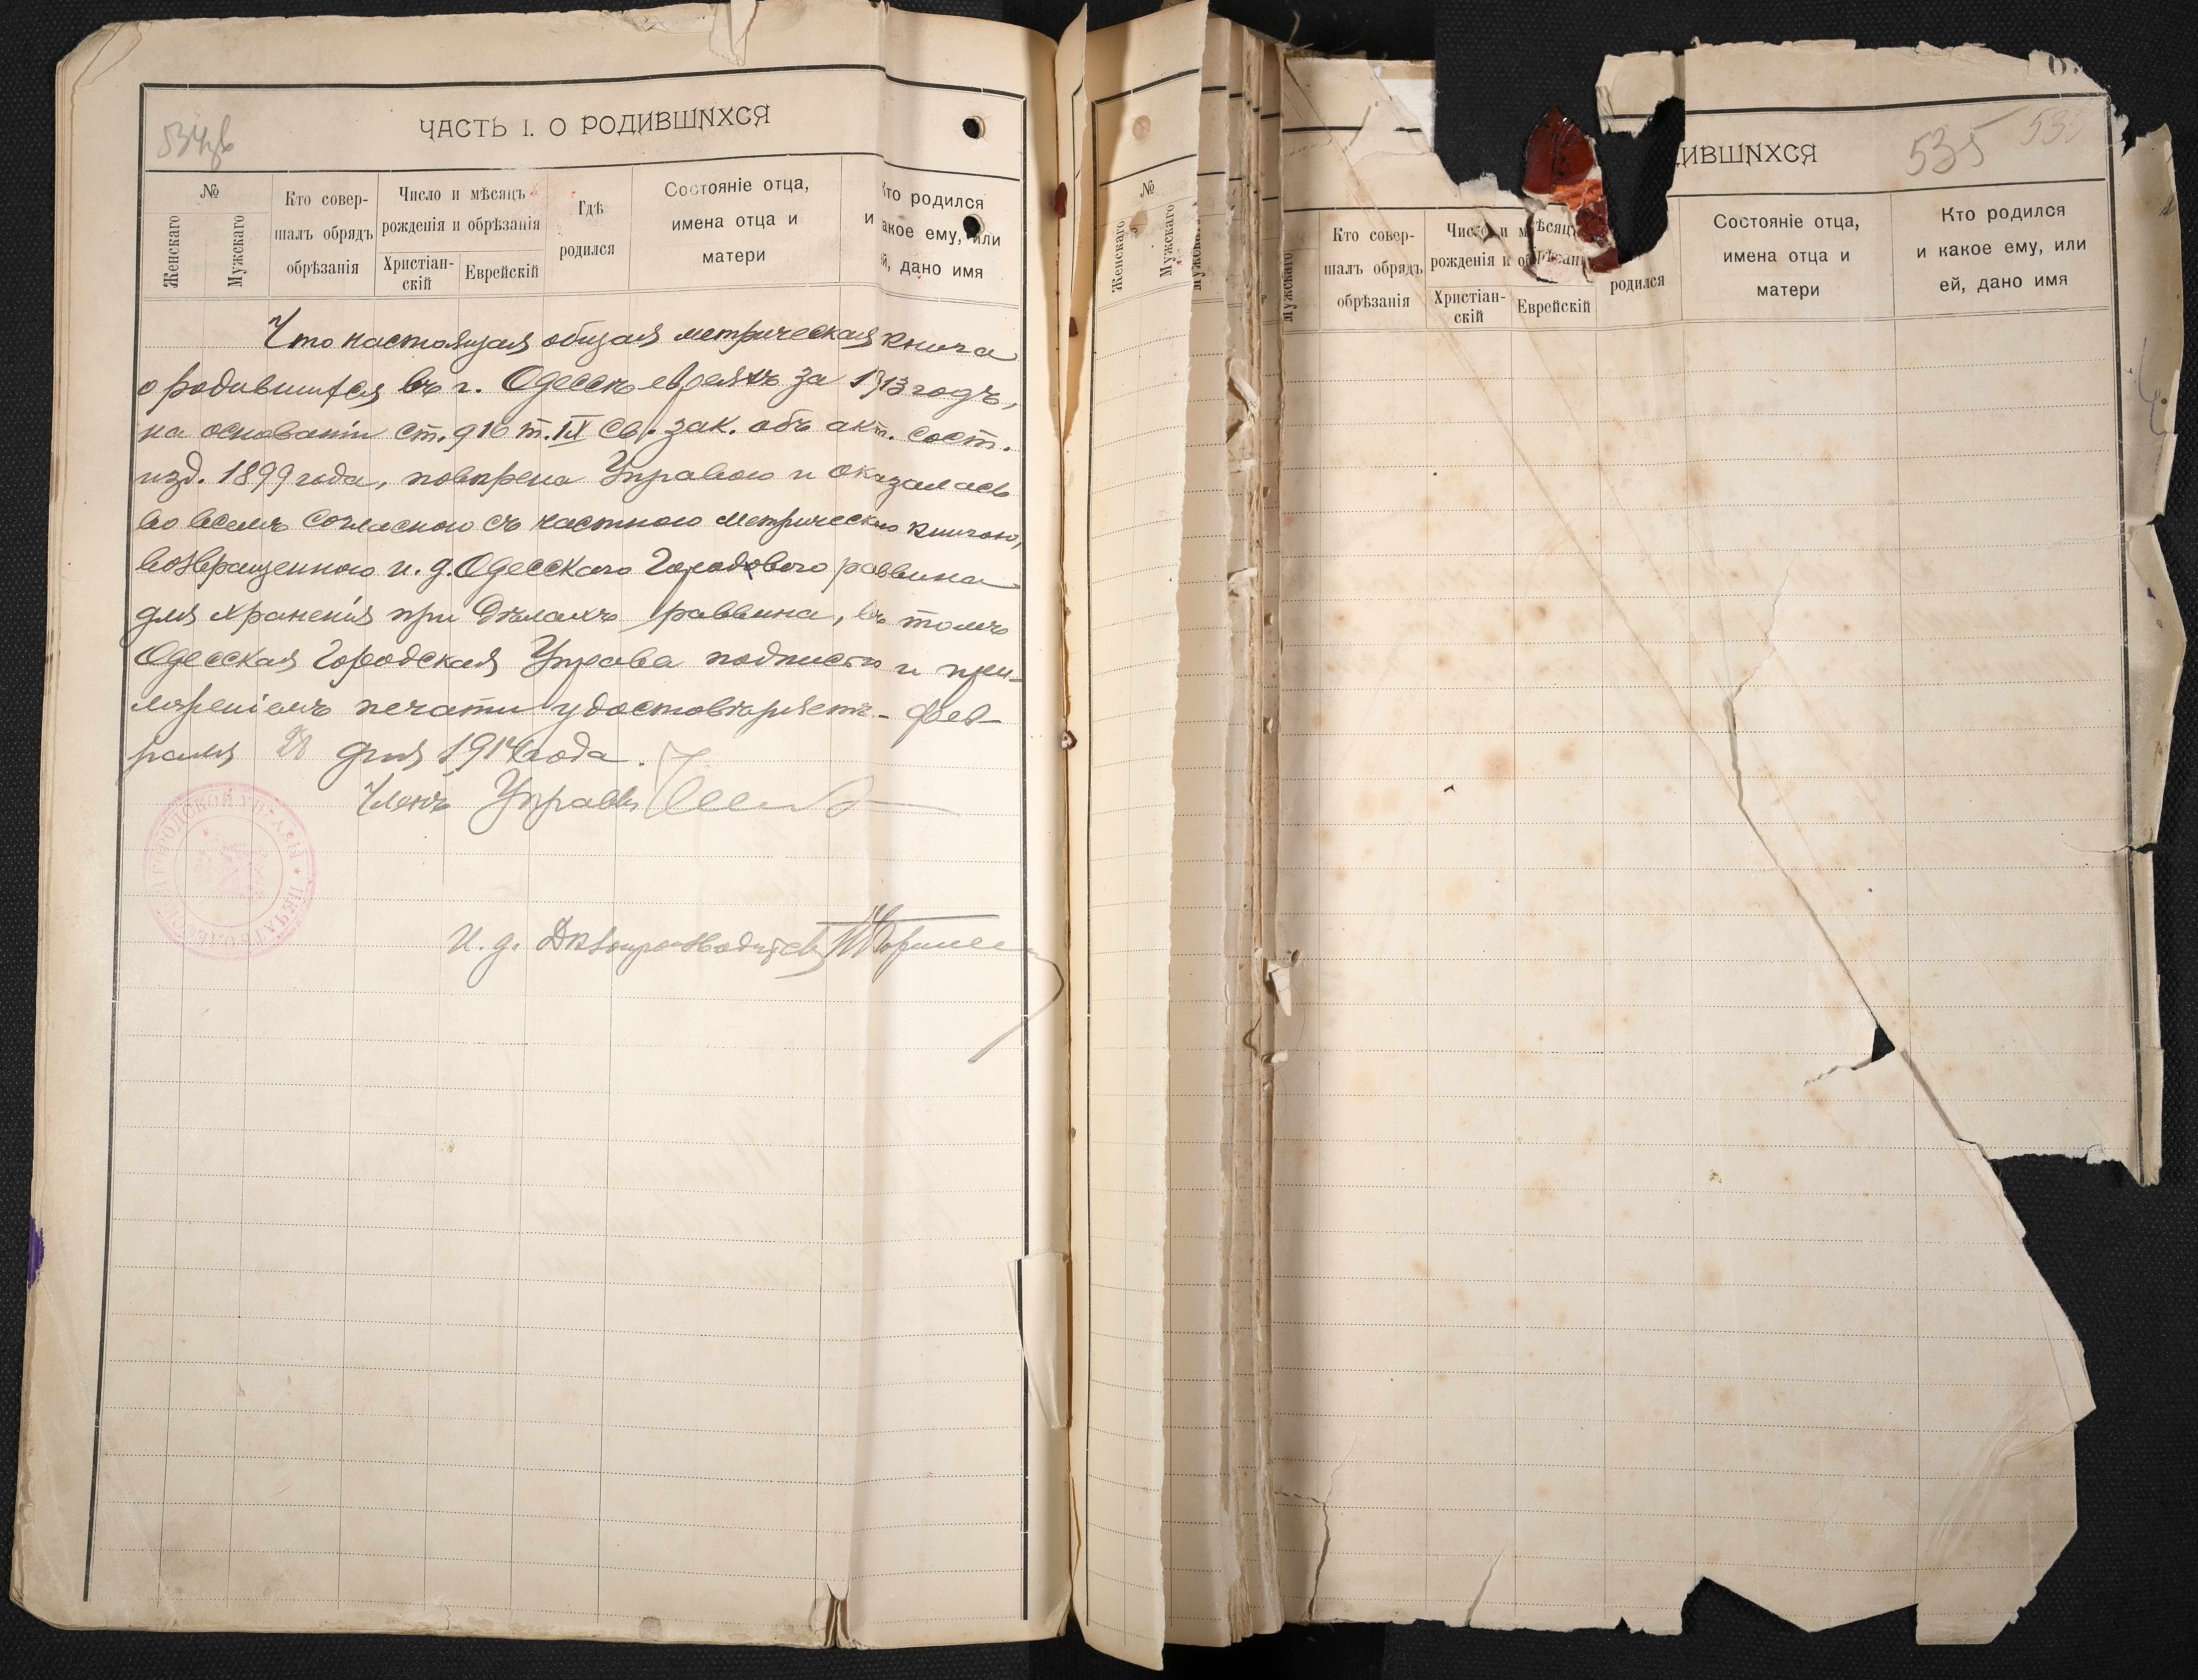 534 об
ЧАСТЬ I. О РОДИВШИХСЯ
№
Женскаго
Мужскаго
Кто совер-
шалъ обрядъ
обрѣзанія
Число и мѣсяцъ
рожденія и обрѣзанія
Христіан-
скій
Еврейскій
Гдѣ
родился
Состояніе отца,
имена отца и
матери
Кто родился
и какое ему, или
ей, дано имя
Что настоящая общая метрическая книга
о родившихся въ г. Одессѣ евреяхъ за 1913 годъ,
на основаніи ст. 916 т. IX Св. зак. объ акт. сост.
изд. 1899 года, повѣрена Управою и оказалась
во всемъ согласною съ частною метрическою книгою,
возвращенною и. д. Одесскаго Городового раввина
для храненія при дѣлахъ раввина, въ томъ
Одесская Городская Управа подписью и при-
ложеніемъ печати удостовѣряетъ - фев-
раля 28 дня 1914 года.
Членъ Управы
И. д. Дѣлопроизводителя
ГОРОДСКОЙ УПРАВЫ * ПЕЧАТЬ
№
Женскаго
Мужскаго
Мужскаго
ДИВШИХСЯ
535
535
Мужскаго
Кто совер-
шалъ обрядъ
обрѣзанія
Число и мѣсяцъ
рожденія и обрѣзанія
Христіан-
скій
Еврейскій
родился
Состояніе отца,
имена отца и
матери
Кто родился
и какое ему, или
ей, дано имя